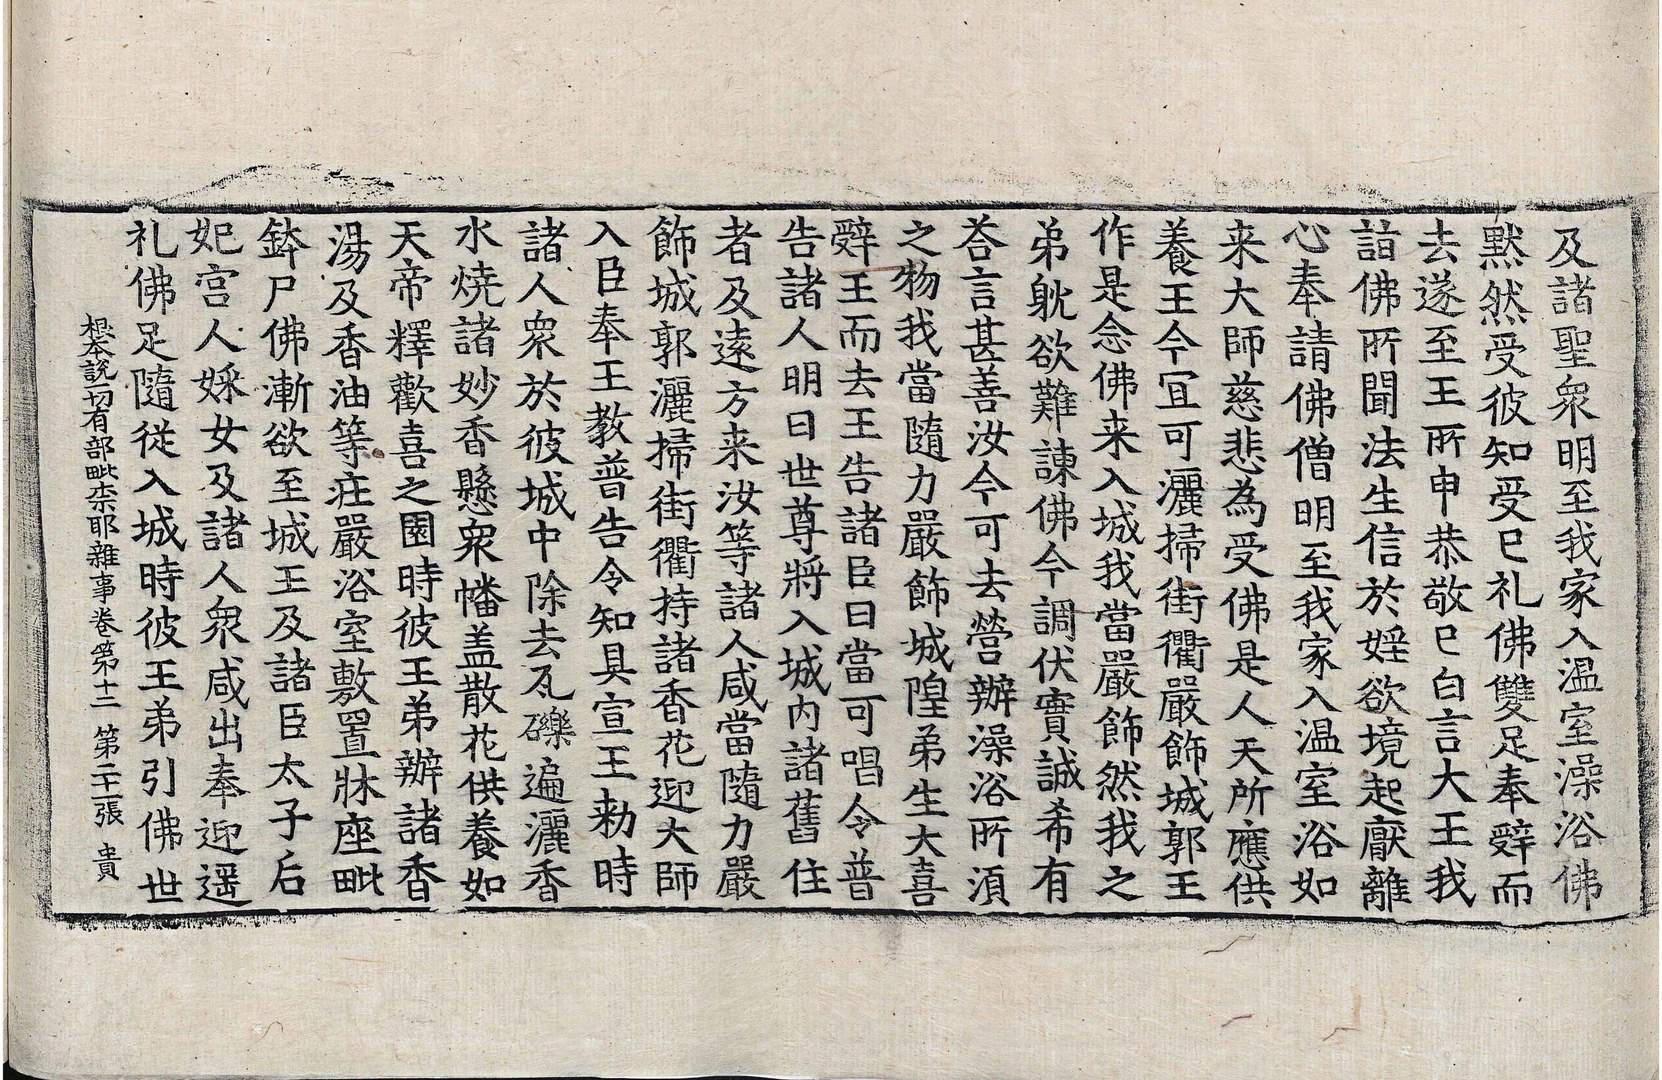 及諸聖衆明至我家入温室澡浴佛
黙然受彼知受已礼佛雙足奉辤而
去遂至王所申恭敬已白言大王我
詣佛所聞法生信於婬欲境起猒離
心奉請佛僧明至我家入温室浴如
来大師慈悲為受佛是人天所應供
養王今冝可灑掃街衢嚴飾城郭王
作是念佛来入城我當嚴飾然我之
弟躭欲難諫佛今調伏實誠希有
荅言甚善汝今可去營辦澡浴所湏
之物我當隨力嚴飾城隍弟生大喜
辤王而去王告諸臣曰當可唱令普
告諸人明日世尊將入城内諸舊住
者及遠方来汝等諸人咸當隨力嚴
飾城郭灑掃街衢持諸香花迎大師
入臣奉王教普告令知具宣王勑時
諸人衆於彼城中除去瓦礫遍灑香
水燒諸妙香懸衆幡盖散花供養如
天帝釋歡喜之園時彼王弟辦諸香
湯及香油等庄嚴浴室敷置牀座毗
鉢尸佛漸欲至城王及諸臣太子后
妃宫人婇女及諸人衆咸出奉迎遥
礼佛足隨從入城時彼王弟引佛世
根本説一切有部毗柰耶雜事卷第十三 第二十一張 貴